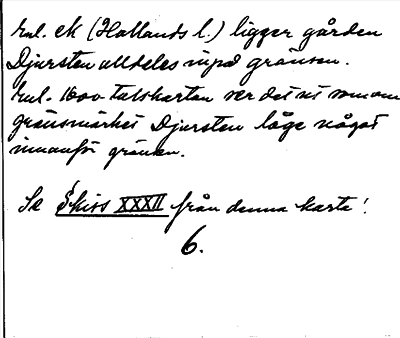 Enl. ek (Hallands l.) ligger gården
Djursten alldeles inpå gränsen.
Enl. 1600-talskartan ser det ut som om
gränsmärket Djursten låge något
innanför gränsen.
Se Skiss XXXII från denna karta!
6.